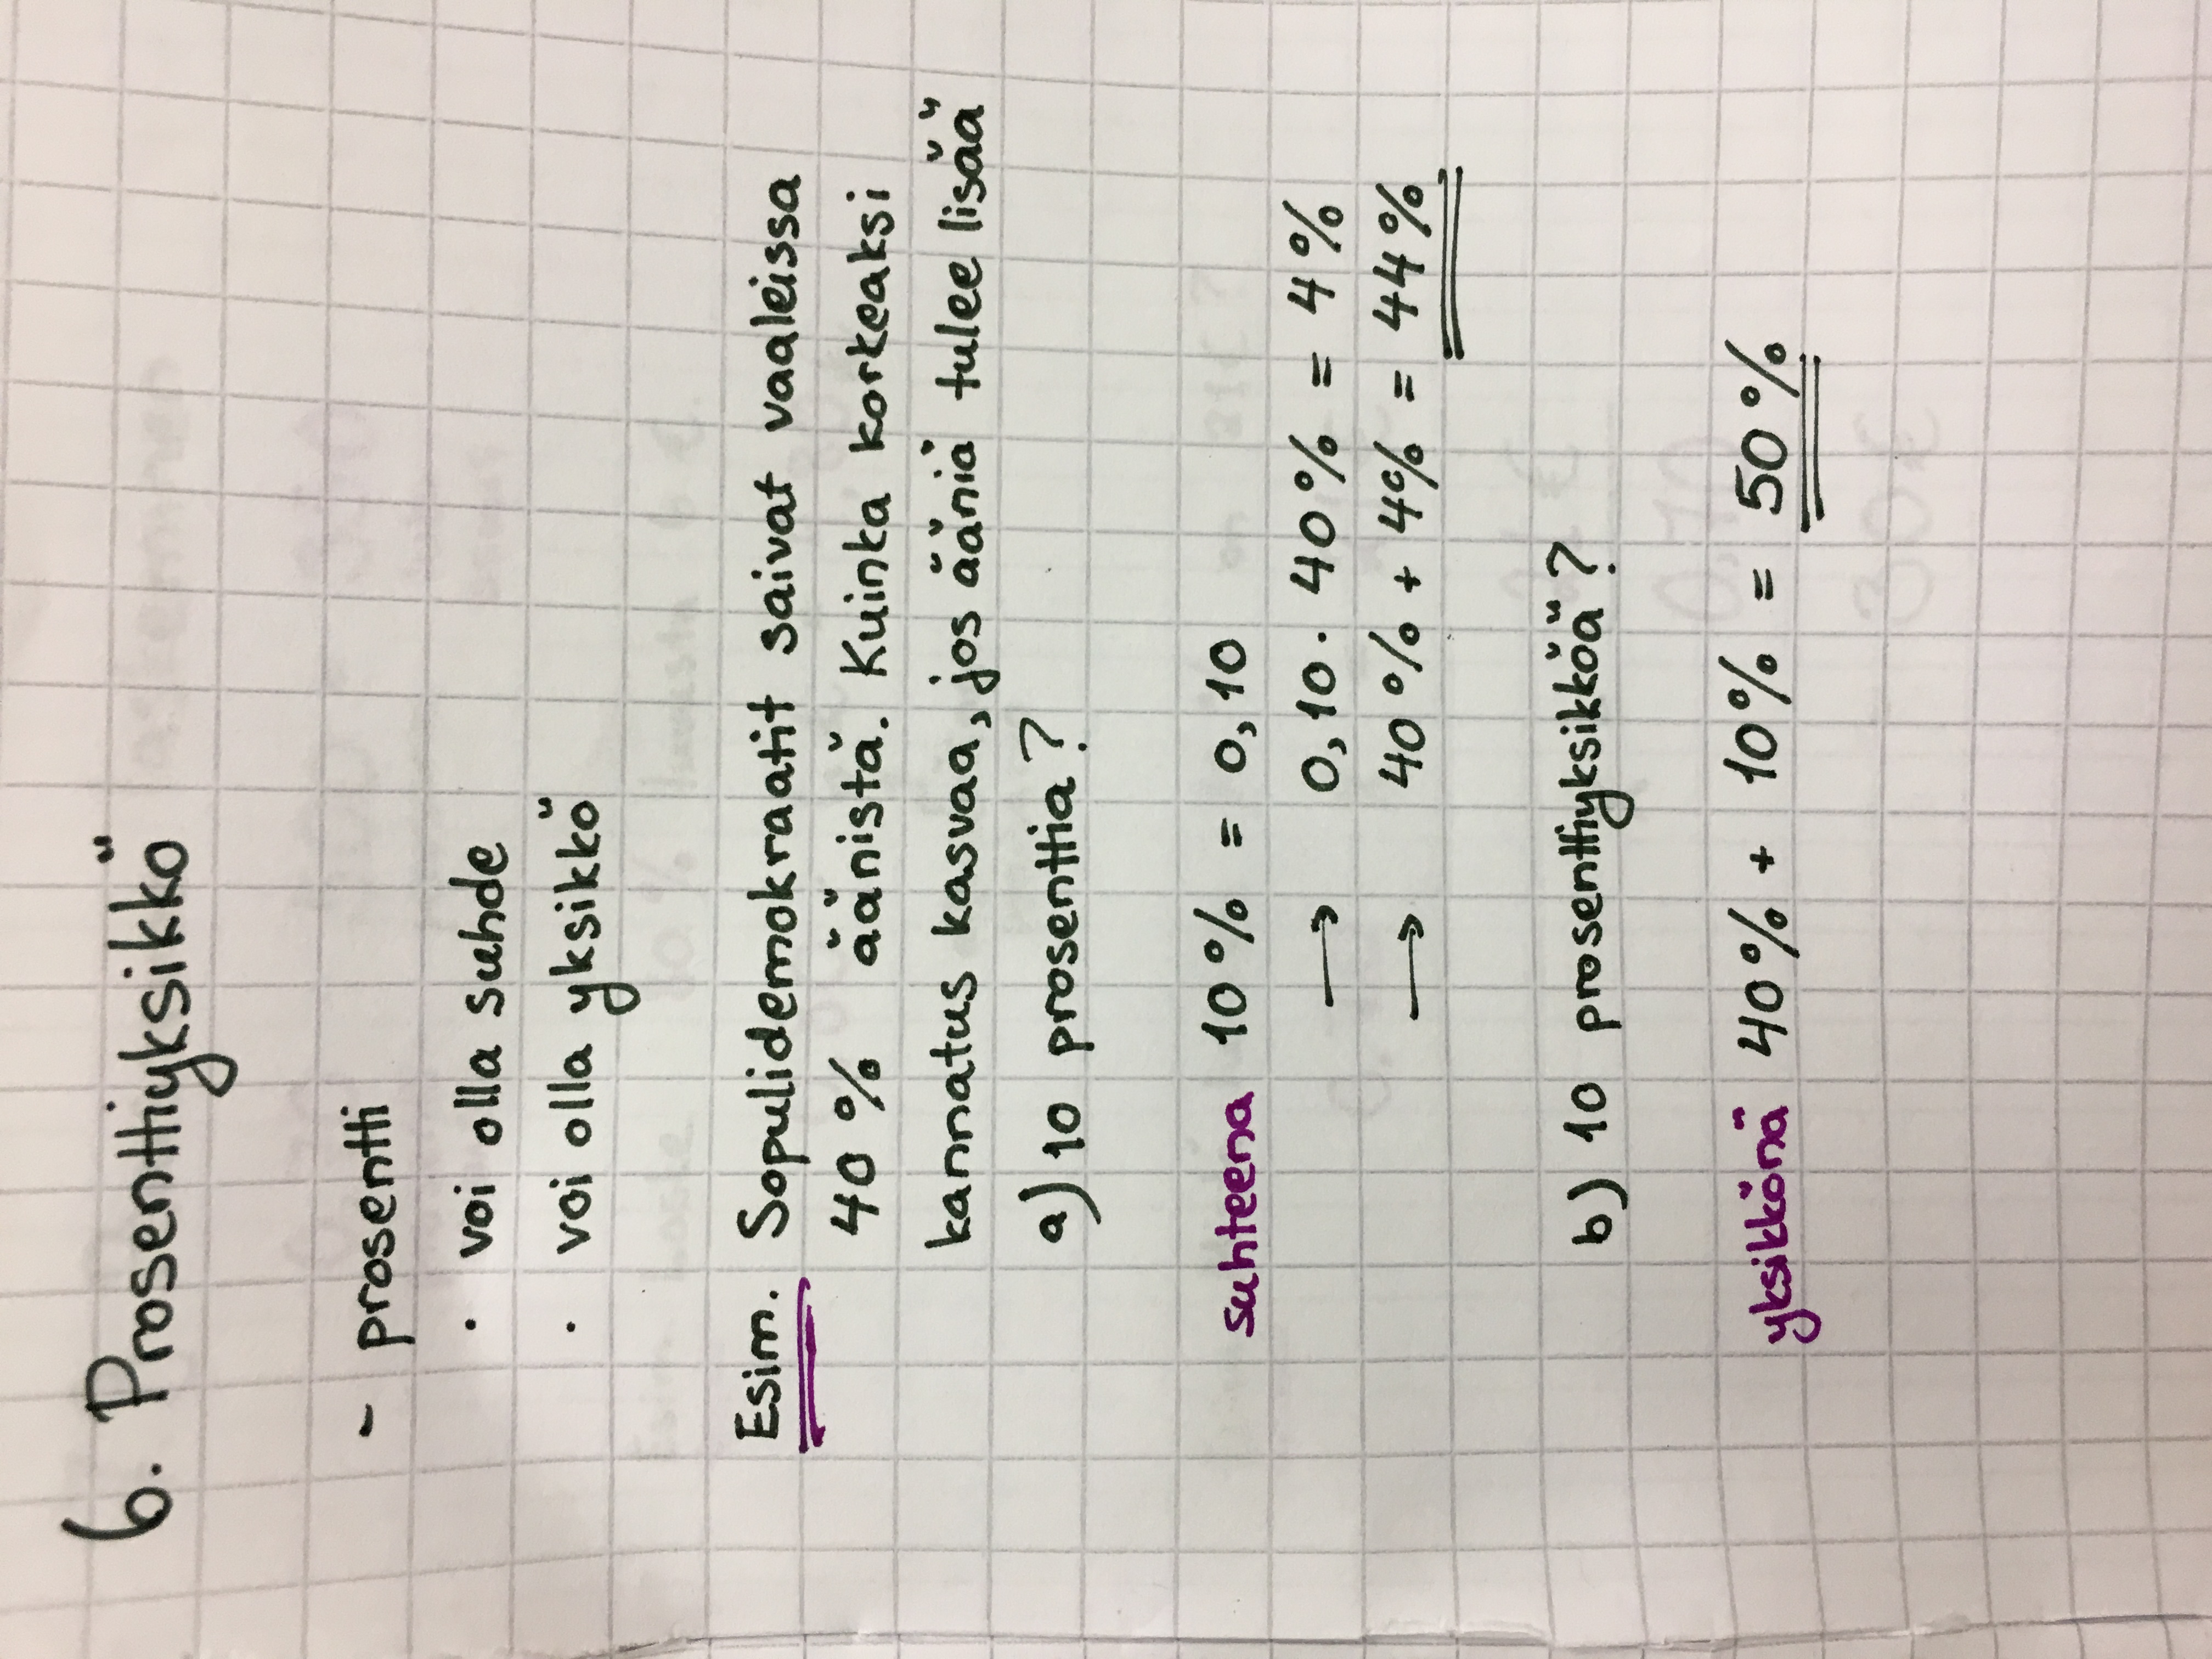 6. Prosenttiyksikkö
- prosentti
• voi olla suhde
• voi olla yksikkö
Esim. Sopulidemokraatit saivat vaaleissa
40 % äänistä. Kuinka korkeaksi
kannatus kasvaa, jos ääniä tulee lisää
a) 10 prosenttia?
suhteena 10 % = 0,10
→ 0,10 · 40 % = 4 %
→ 40 % + 4 % = 44 %
b) 10 prosenttiyksikköä?
yksikkönä 40 % + 10 % = 50 %